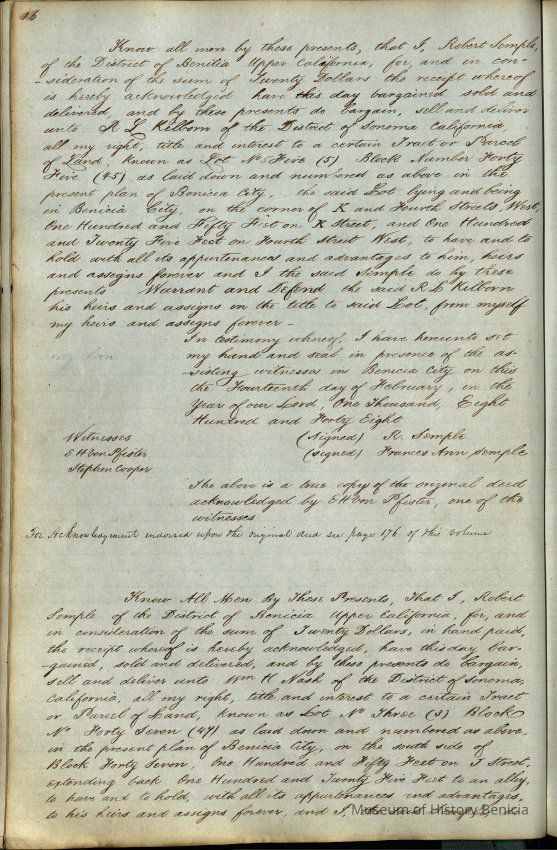 16
Know all men by these presents, that I, Robert Semple,
of the District of Benicia Upper California, for, and in con-
-sideration of the sum of Twenty Dollars the receipt whereof
is hereby acknowledged have this day bargained sold and
delivered, and by these presents do bargain, sell and deliver
unto R L Kilborn of the District of Sonoma California,
all my right, title and interest to a certain Tract or Parcel
of Land, known as Lot No Five (5) Block Number Forty
Five (45) as laid down and numbered as above in the
present plan of Benicia City, the said Lot lying and being
in Benicia City, on the corner of K and Fourth Streets, West,
One Hundred and Fifty Feet on K Street, and One Hundred
and Twenty Five Feet on Fourth Street West, to have and to
hold with all its appurtenances and advantages to him, heirs
and assigns forever and I the said Semple do by these
presents Warrant and Defend the said R L Kilborn
his heirs and assigns in the title to said Lot, from myself
my heirs and assigns forever -
In testimony whereof, I have hereunto set
my hand and seal in presence of the as-
-sisting witnesses in Benicia City on this
the Fourteenth day of February, in the
Year of our Lord, One Thousand, Eight
Hundred and Forty Eight
Witnesses (Signed) R. Semple
E H Von Pfister (signed) Frances Ann Semple
Stephen Cooper
The above is a true copy of the original deed
acknowledged by E H Von Pfister, one of the
witnesses
For Acknowledgement endorsed upon the original deed see page 176 of this volume
Know All Men By These Presents, That I, Robert
Semple of the District of Benicia Upper California, for, and
in consideration of the sum of Twenty Dollars, in hand paid,
the receipt whereof is hereby acknowledged, have this day bar-
gained, sold and delivered, and by these presents do bargain,
sell and deliver unto Wm H Nash of the District of Sonoma,
California, all my right, title and interest to a certain Tract
or Parcel of Land, known as Lot No Three (3) Block
No Forty Seven (47) as laid down and numbered as above,
in the present plan of Benicia City, on the south side of
Block Forty Seven, One Hundred and Fifty Feet on I Street,
extending back One Hundred and Twenty Five Feet to an alley,
to have and to hold, with all its appurtenances and advantages,
to his heirs and assigns forever, and I,
Museum of History Benicia